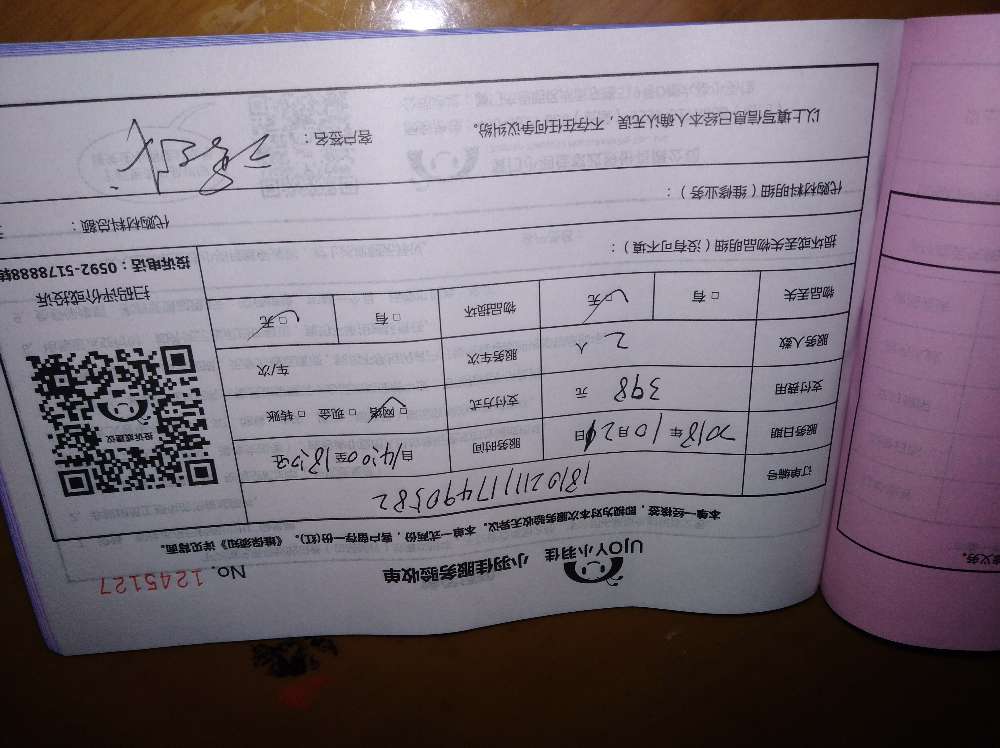 UJOY小羽佳 小羽佳服务验收单 No. 1245127
本单一经核签，即视为对本次服务验收无异议。本单一式两份，客户留存一份(红)。《维保须知》详见背面。
订单编号 18102111117490582
服务日期 2018年10月21日 服务时间 自14:00至18:00止
支付费用 398元 支付方式 □网络 □现金 □转账
服务人数 2人 服务车次 车/次
物品丢失 □有 □无 物品损坏 □有 □无
投诉或建议
扫码评价或投诉
投诉电话：0592-5178888转
损坏或丢失物品明细（没有可不填）：
代购材料明细（维修业务）：
代购材料总额：
以上填写信息已经本人确认无误，不存在任何争议纠纷。 客户签名：